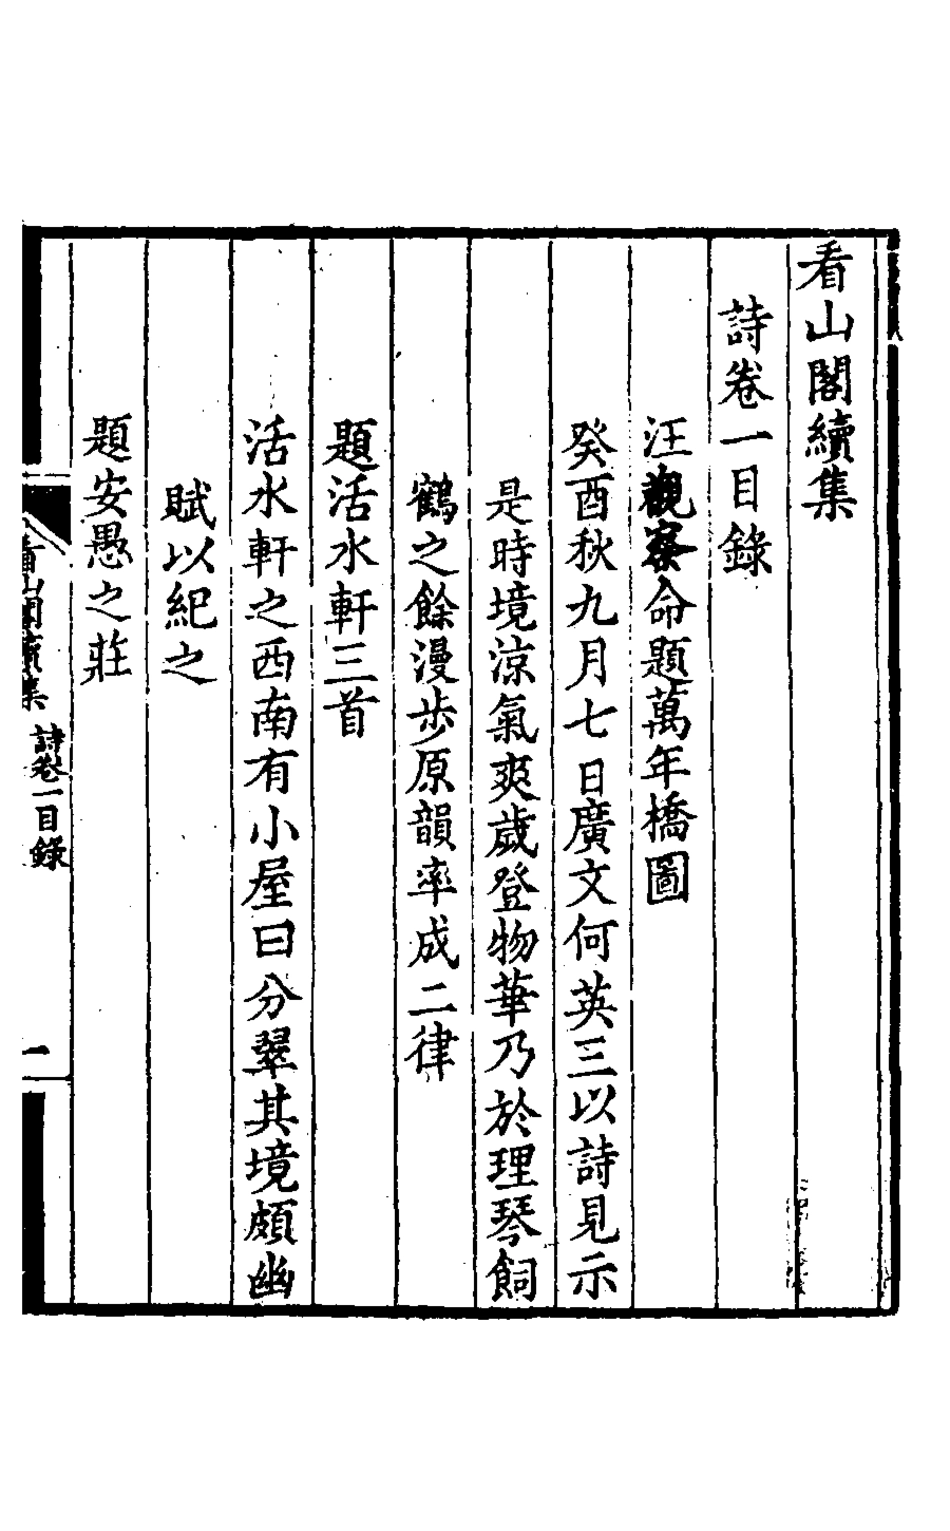 看山閣續集
詩卷一目錄
汪觀察命題萬年橋圖
癸酉秋九月七日廣文何英三以詩見示
是時境涼氣爽歲登物華乃於理琴飼
鶴之餘漫步原韻率成二律
題活水軒三首
活水軒之西南有小屋曰分翠其境頗幽
賦以紀之
題安愚之莊
看山閣續集 詩卷一目錄 一